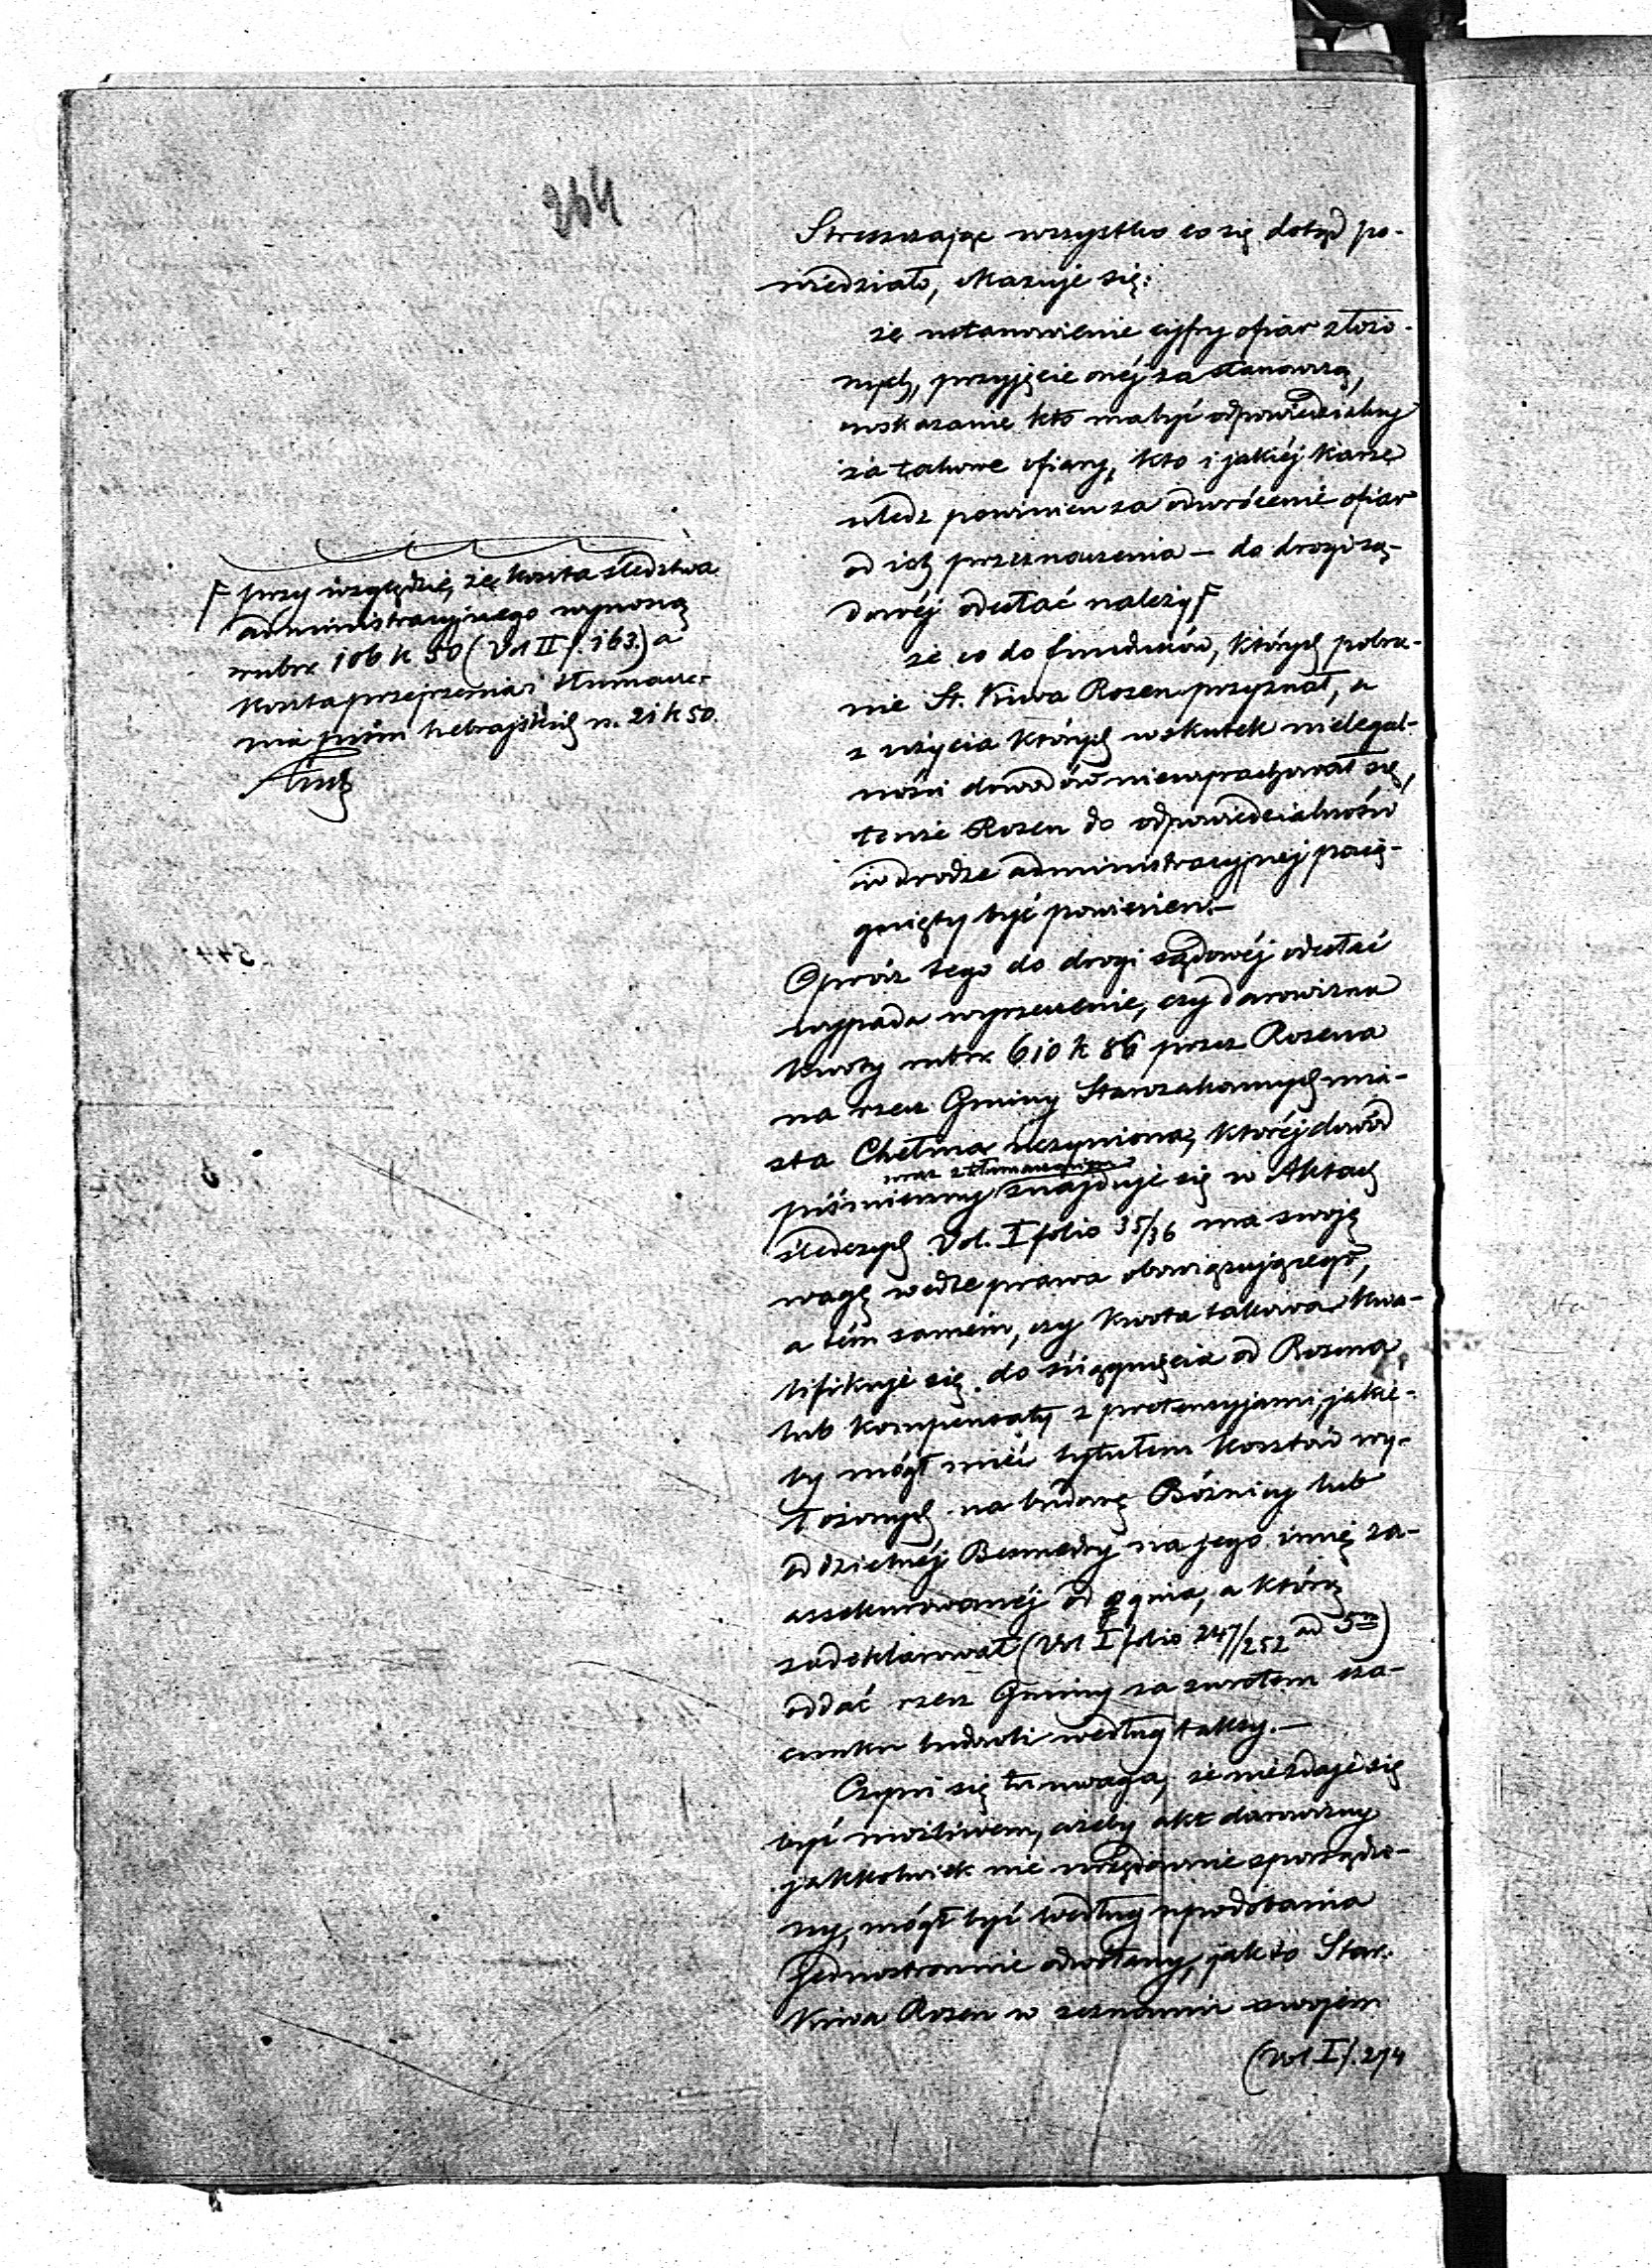 264
Streszczając wszystko co się dotąd po-
wiedziało, okazuje się:
że ustanowienie cyfry ofiar złożo-
nych, przyjęcie onéj za stanowczą,
wskazanie kto ma być odpowiedzialny
za takowe ofiary, kto i jakiéj karze
uledz powinien za odwrócenie ofiar
od ich przeznaczenia – do drogi są-
dowéj odesłać należy F
że co do funduszów, których pobra-
nie St. Kiwa Rozen przyznał, a
z użycia których wskutek nielegal-
ności dowodów niewyrachował się,
tenże Rozen do odpowiedzialności
w drodze administracyjnej pocią-
gnięty być powinien.–
Oprócz tego do drogi sądowéj odesłać
wypada wyrzeczenie, czy darowizna
kwoty rubsr. 610 k 86 przez Rozena
na rzecz Gminy Starozakonnych mia-
sta Chełma uczyniona, któréj dowód
wraz z tłumaczeniem
piśmienny znajduje się w Aktach
śledczych Vol. I folio 35/36 ma swoję
wagę wedle prawa obowiązującego,
a tém samém, czy kwota takowa kwa-
lifikuje się do ściągnięcia od Rozena
lub kompensaty z pretensyjami, jakie-
by mógł mieć tytułem kosztów wy-
łożonych na budowę Bóżnicy lub
oddzielnéj Besmedry na jego imię za-
assekurowanéj od ognia, a którą
zadeklarował (Vol I folio 247/252 ad 5m)
oddać rzecz Gminy za zwrotem sza-
cunku budowli według taksy.–
Czyni się tu uwaga, że niezdaje się
być możliwem, ażeby akt darowizny
jakkolwiek nie urzędownie sporządzo-
ny, mógł być według upodobania
jednostronnie odwołany, jak to Star.
Kiwa Rozen w zeznaniu swojem
(Vol I f. 274
F przy względzie, że koszta śledztwa
administracyjnego wynoszą
rubsr. 106 k 50 (Vol II f. 163.) a
koszta przejrzenia i tłumacze-
nia pism hebrajskich r. 21 k 50.